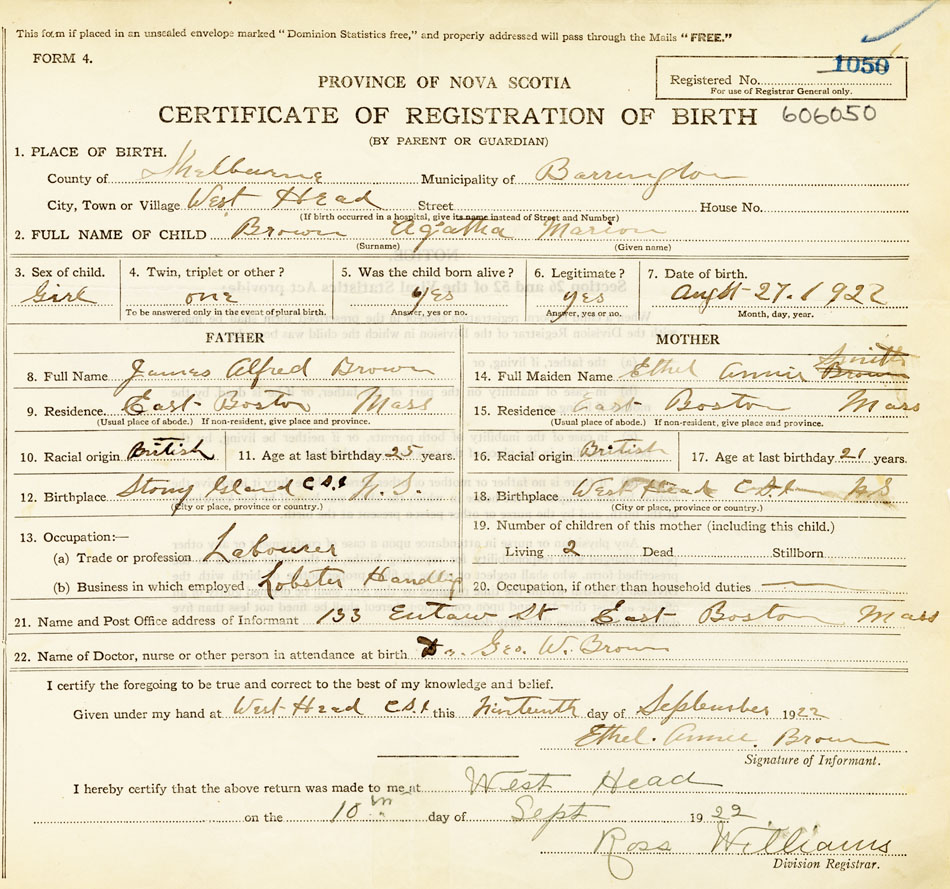 This form if placed in an unsealed envelope marked "Dominion Statistics free," and properly addressed will pass through the Mails "FREE."
FORM 4.
1050
Registered No.
For use of Registrar General only.
PROVINCE OF NOVA SCOTIA
CERTIFICATE OF REGISTRATION OF BIRTH 606050
(BY PARENT OR GUARDIAN)
1. PLACE OF BIRTH.
County of Shelburne Municipality of Barrington
City, Town or Village West Head Street House No.
(If birth occurred in a hospital, give its name instead of Street and Number)
2. FULL NAME OF CHILD Brown Agatha Marion
(Surname) (Given name)
3. Sex of child. 4. Twin, triplet or other? 5. Was the child born alive? 6. Legitimate? 7. Date of birth.
Girl one yes yes Augst 27. 1922
To be answered only in the event of plural birth. Answer, yes or no. Answer, yes or no. Month, day, year.
FATHER MOTHER
Smith
8. Full Name James Alfred Brown 14. Full Maiden Name Ethel Annie Brown
9. Residence East Boston Mass 15. Residence East Boston Mass
(Usual place of abode.) If non-resident, give place and province. (Usual place of abode.) If non-resident, give place and province.
10. Racial origin British 11. Age at last birthday 25 years. 16. Racial origin British 17. Age at last birthday 21 years.
12. Birthplace Stony Island C.S.I N.S. 18. Birthplace West Head C.S.I N.S
(City or place, province or country.) (City or place, province or country.)
13. Occupation:— 19. Number of children of this mother (including this child.)
(a) Trade or profession Labourer Living 2 Dead Stillborn
(b) Business in which employed Lobster Handling 20. Occupation, if other than household duties
21. Name and Post Office address of Informant 133 Eutaw St East Boston Mass
22. Name of Doctor, nurse or other person in attendance at birth Dr. Geo. W. Brown
I certify the foregoing to be true and correct to the best of my knowledge and belief.
Given under my hand at West Head C.S.I this day of September 1922
Ethel. Annie. Brown
Signature of Informant.
I hereby certify that the above return was made to me at West Head
on the 10 th day of Sept 1922
Ross Williams
Division Registrar.